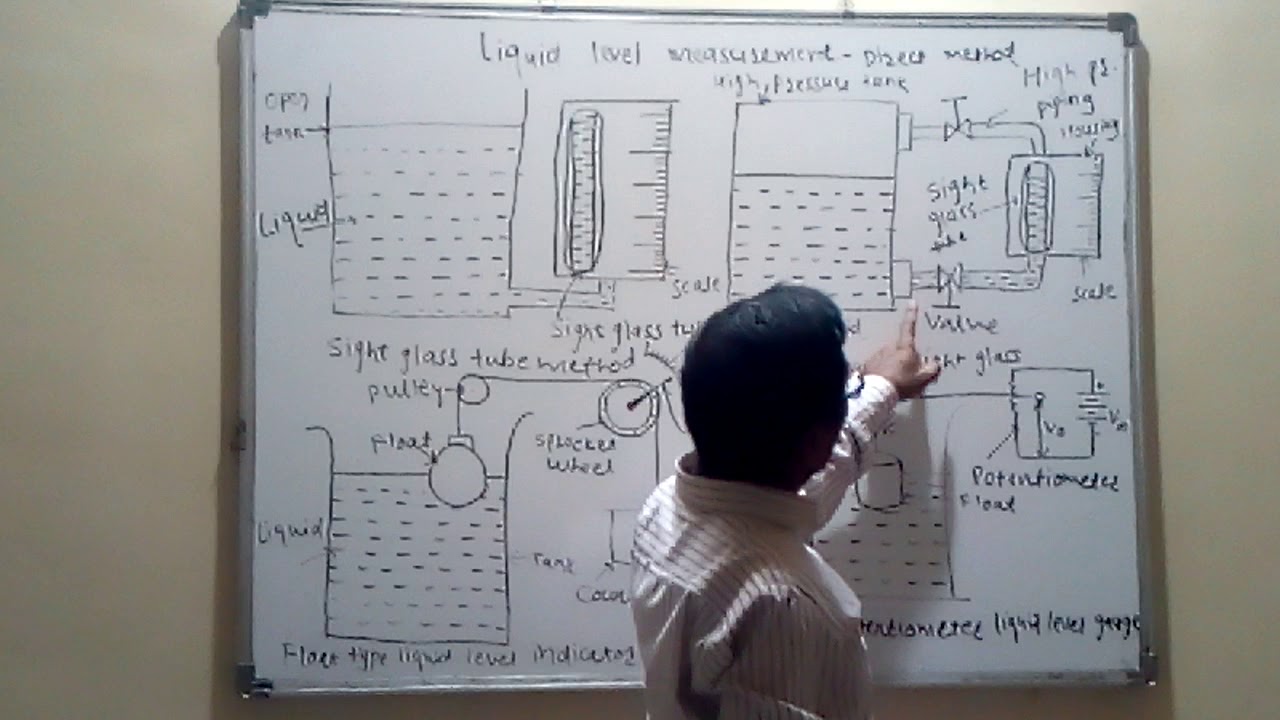 Liquid level measurement - Direct method
High pressure tank
High pr.
piping
Housing
open
tank
Liquid
Sight
glass
tube
scale
scale
Sight glass
Valve
Sight glass tube method
ight glass
pulley
Float
sprocket
wheel
Potentiometer
Float
Liquid
Tank
Float type liquid level indicator
tentiometer liquid level gauge